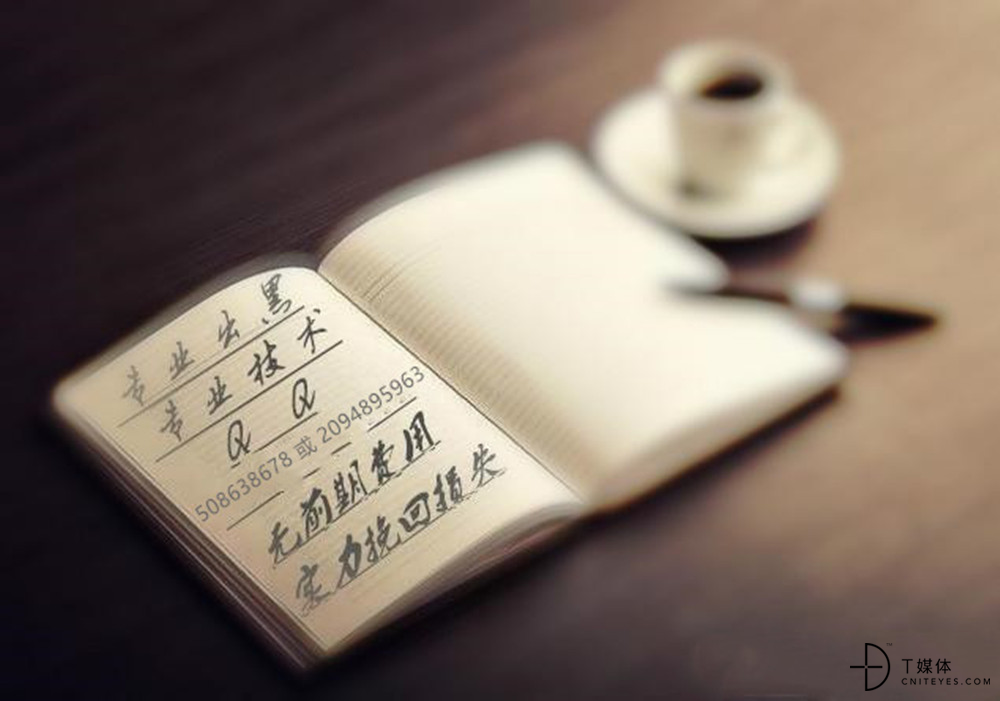 专业出黑
专业技术
QQ
508638678 或 2094895963
无前期费用
实力挽回损失
T媒体
CNITEYES.COM